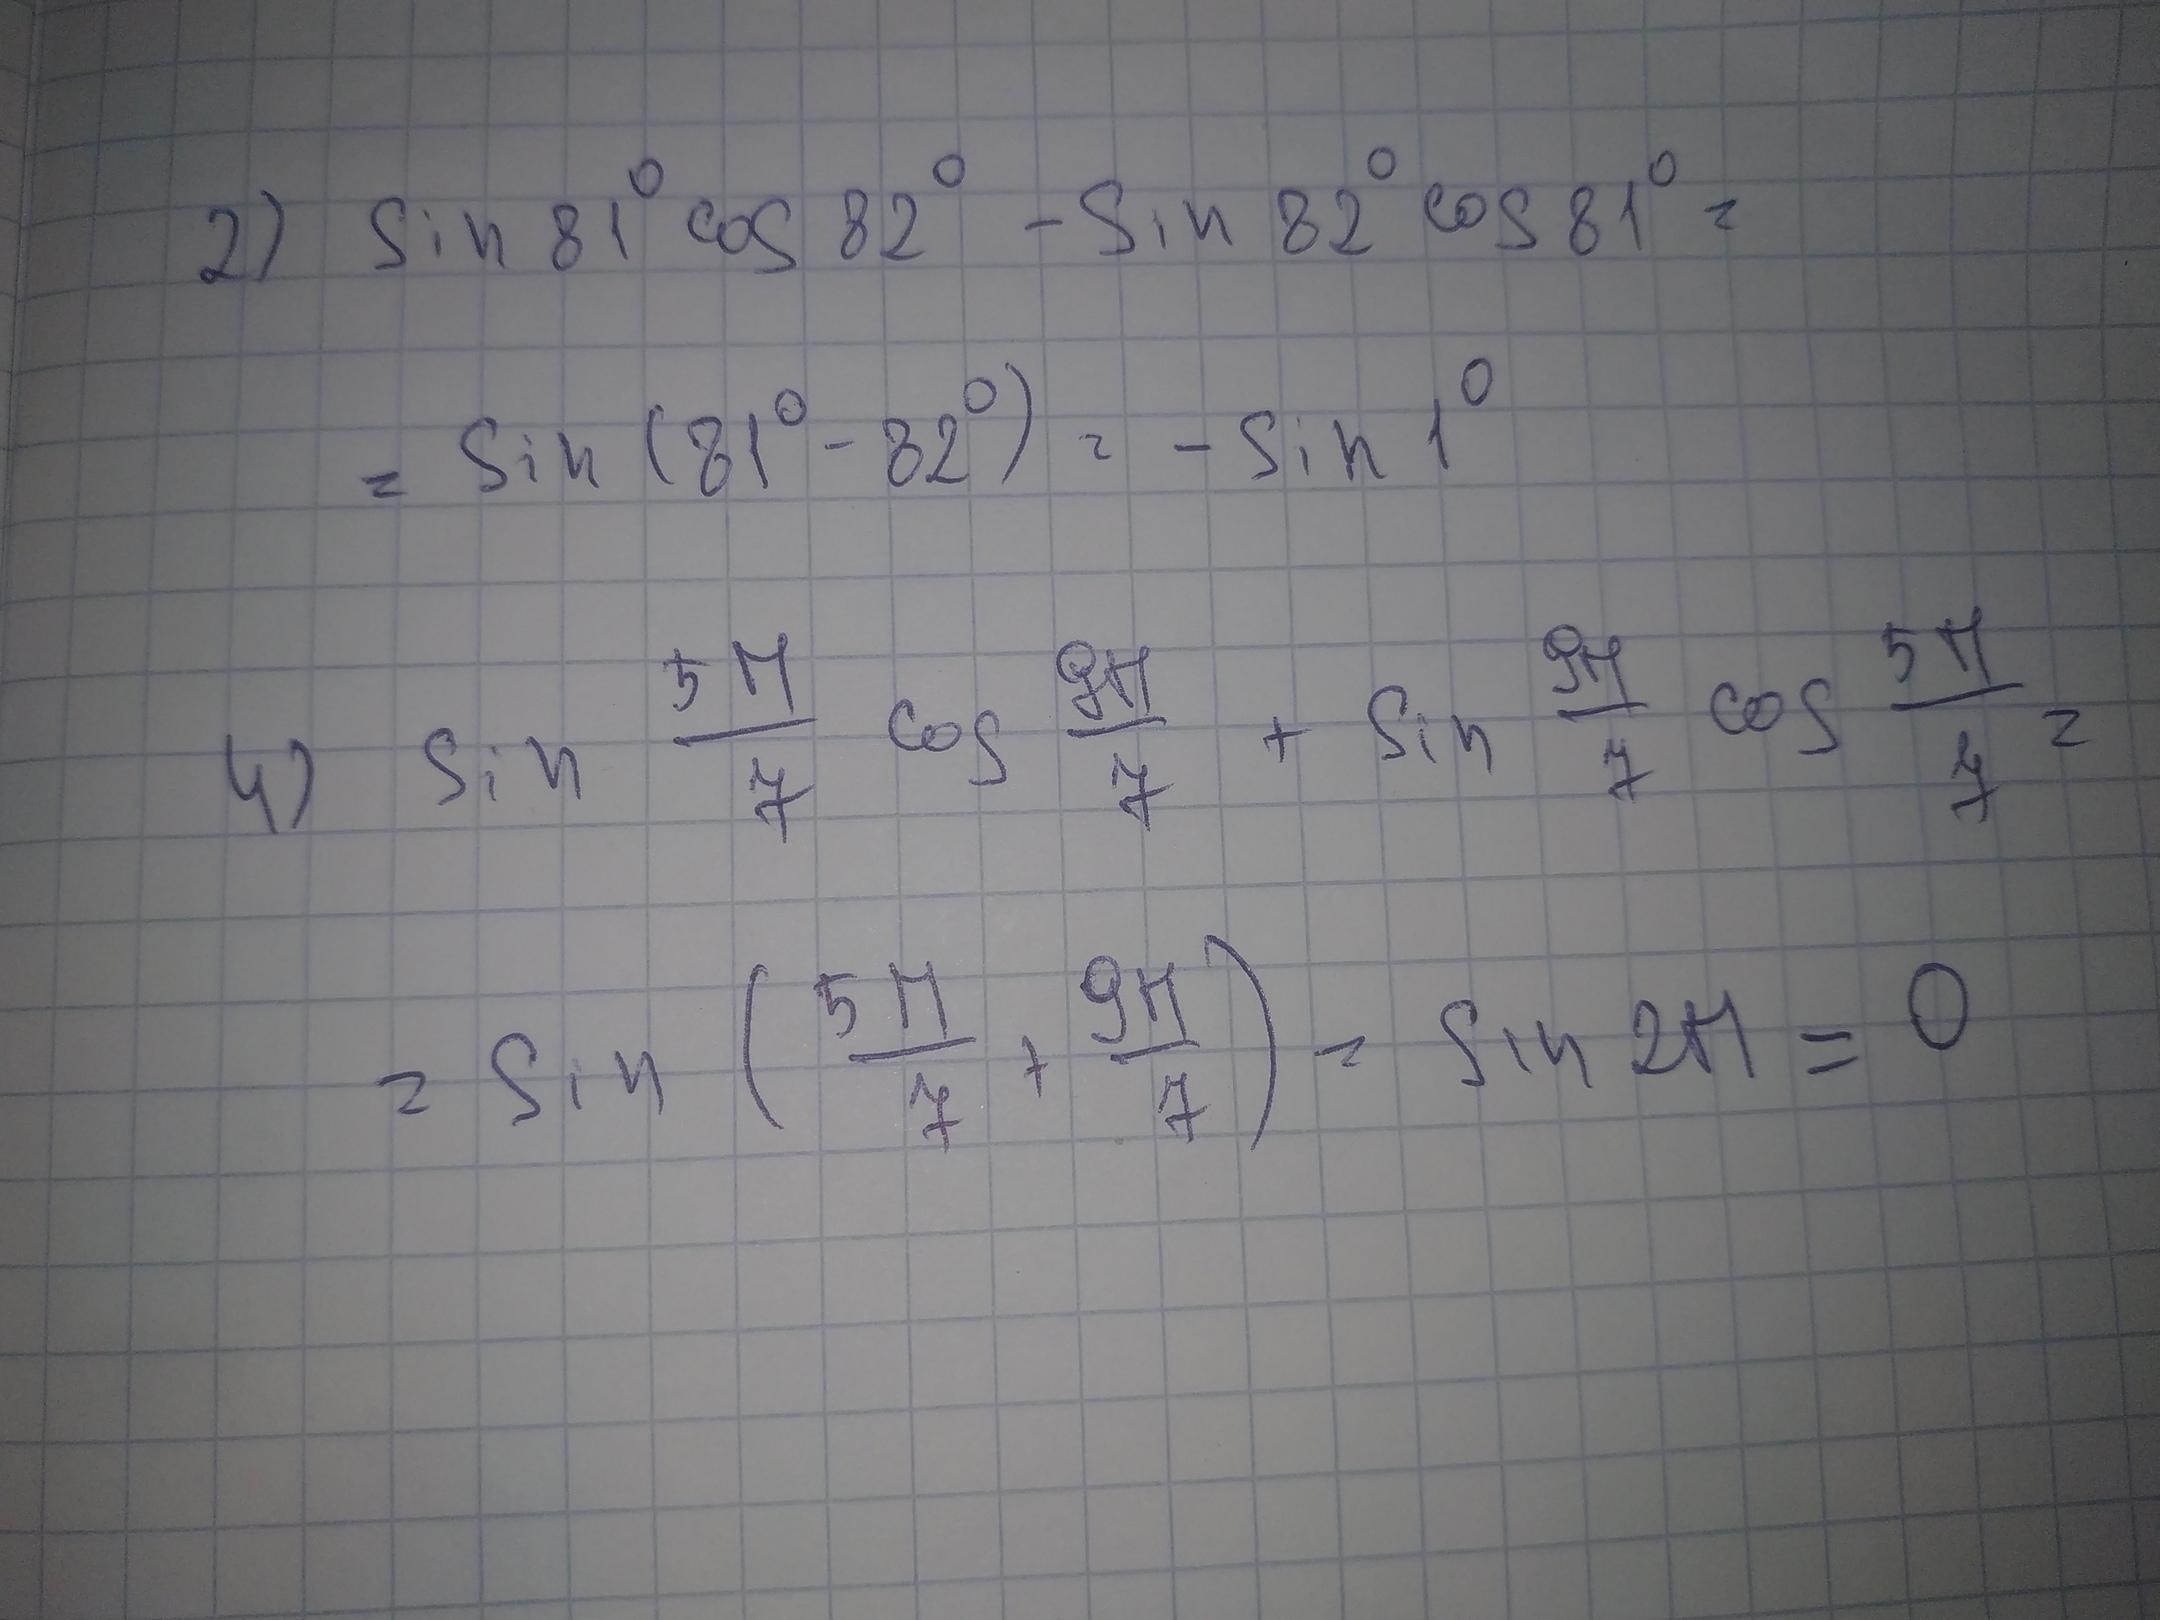 2) Sin 81° cos 82° - Sin 82° cos 81° =
= Sin (81° - 82°) = - Sin 1°
4) Sin 5π/7 cos 9π/7 + Sin 9π/7 cos 5π/7 =
= Sin (5π/7 + 9π/7) = Sin 2π = 0